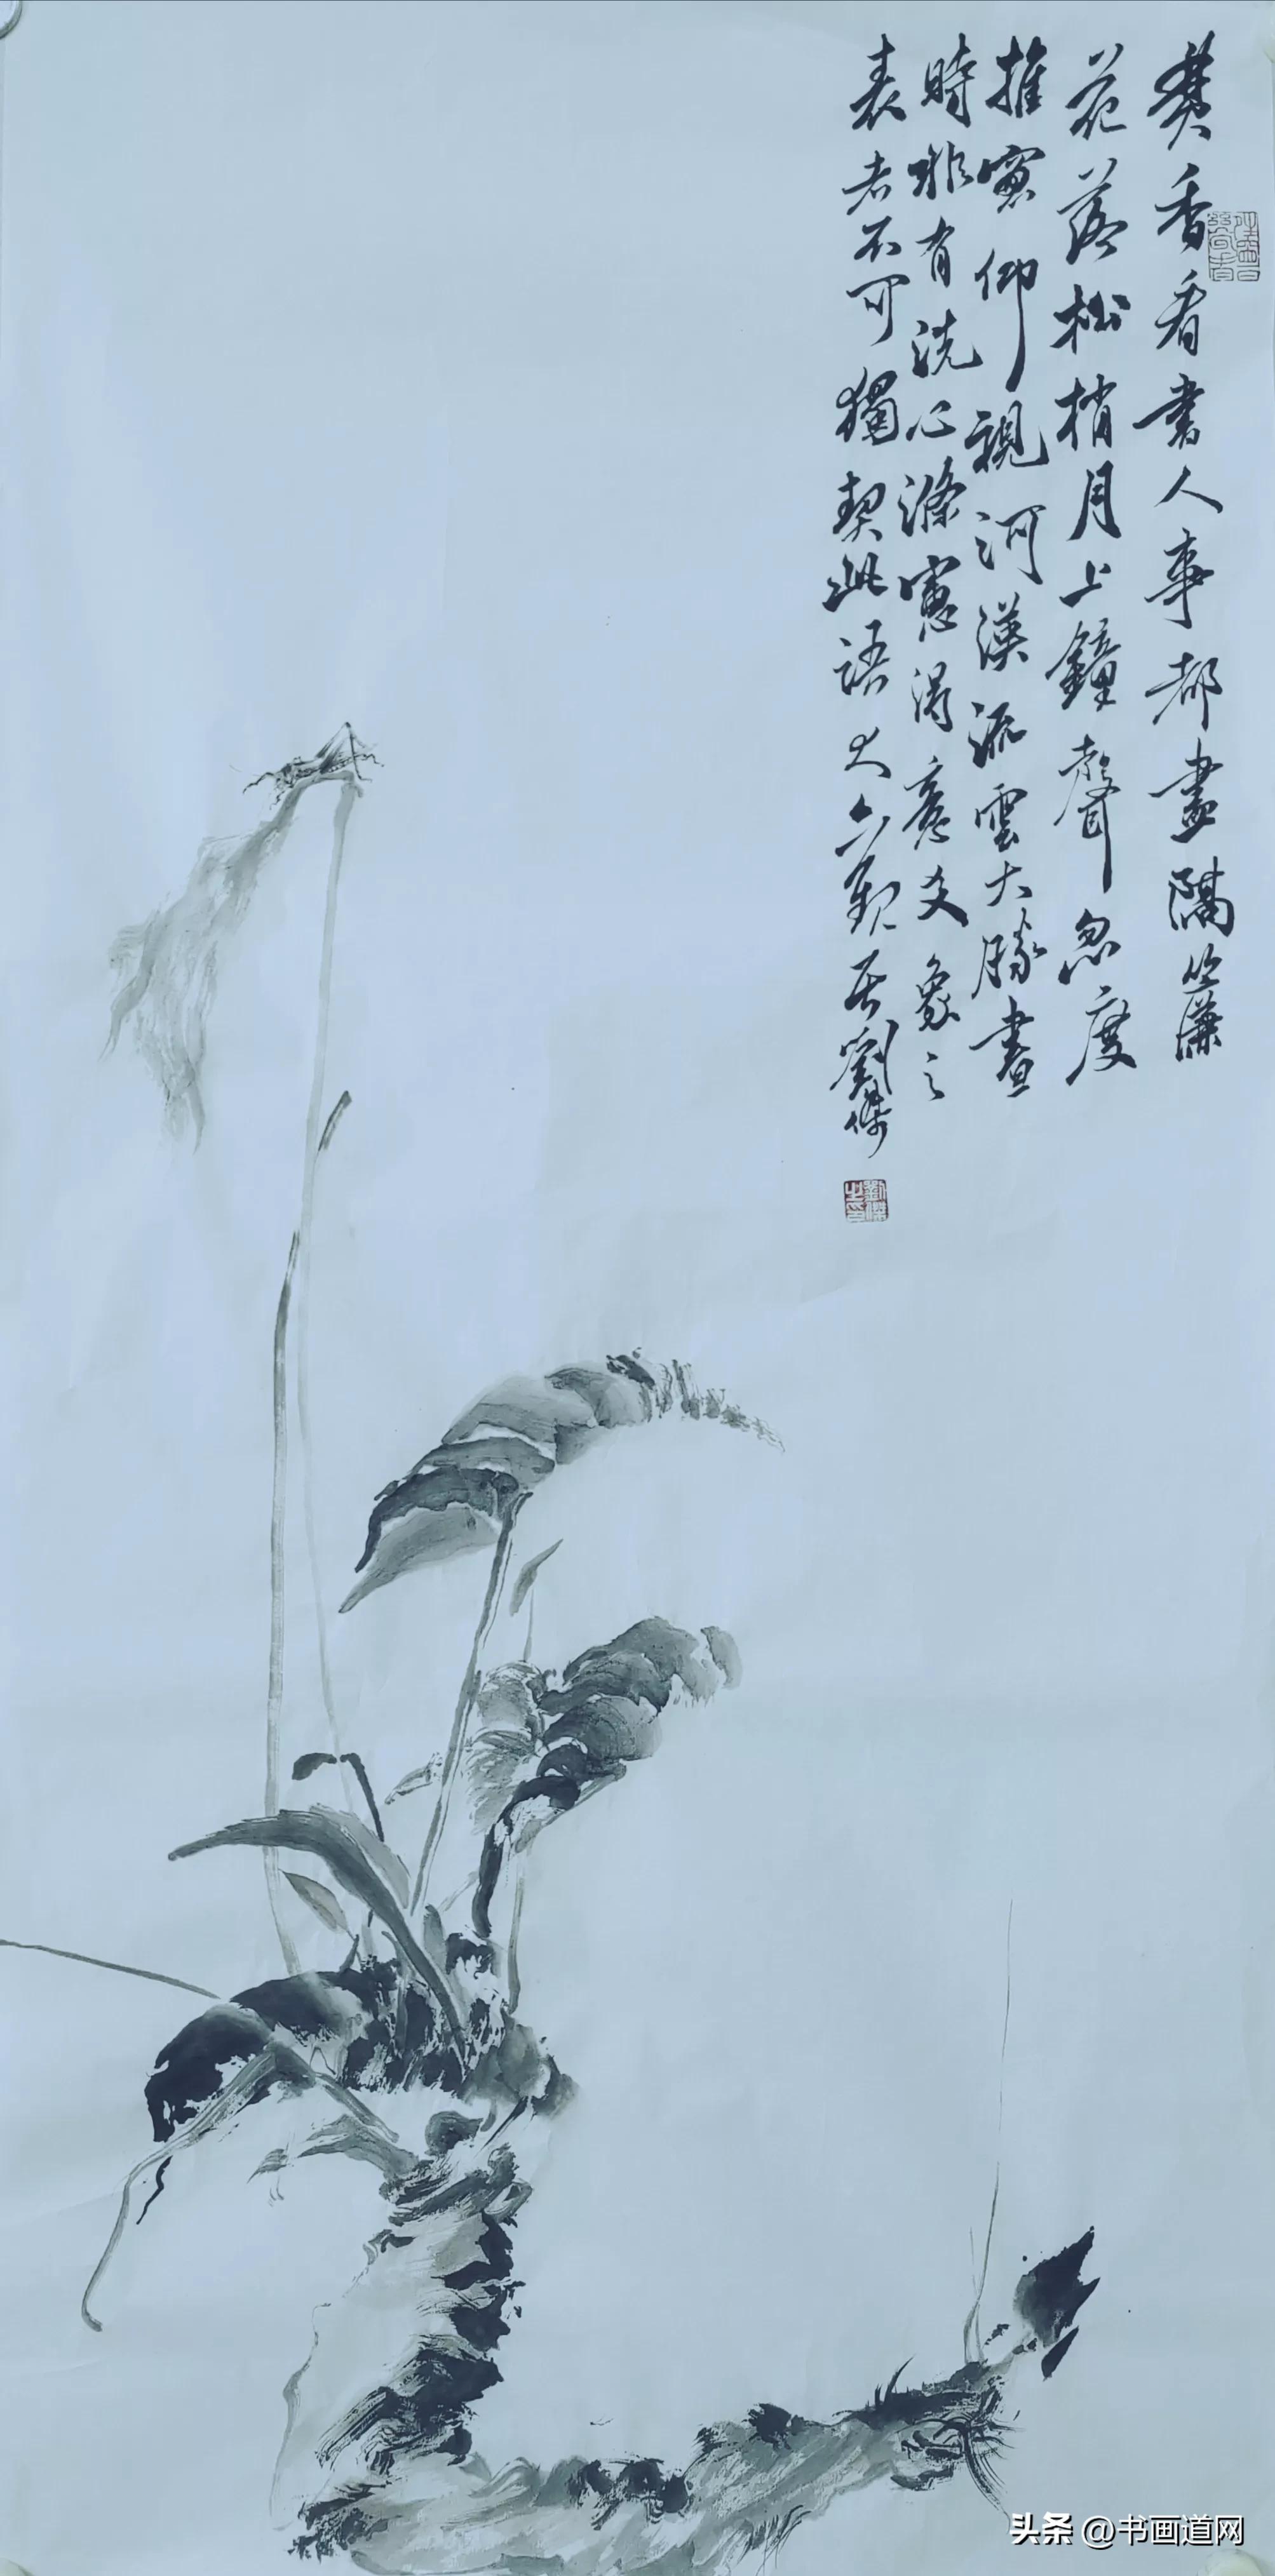 焚香看書人事都盡隔簾
花落松梢月上鐘聲忽度
推窻仰視河漢流雲大勝晝
時非有洗心滌慮得意爻象之
表者不可獨契此語劉傑
劉傑之印
头条 @书画道网